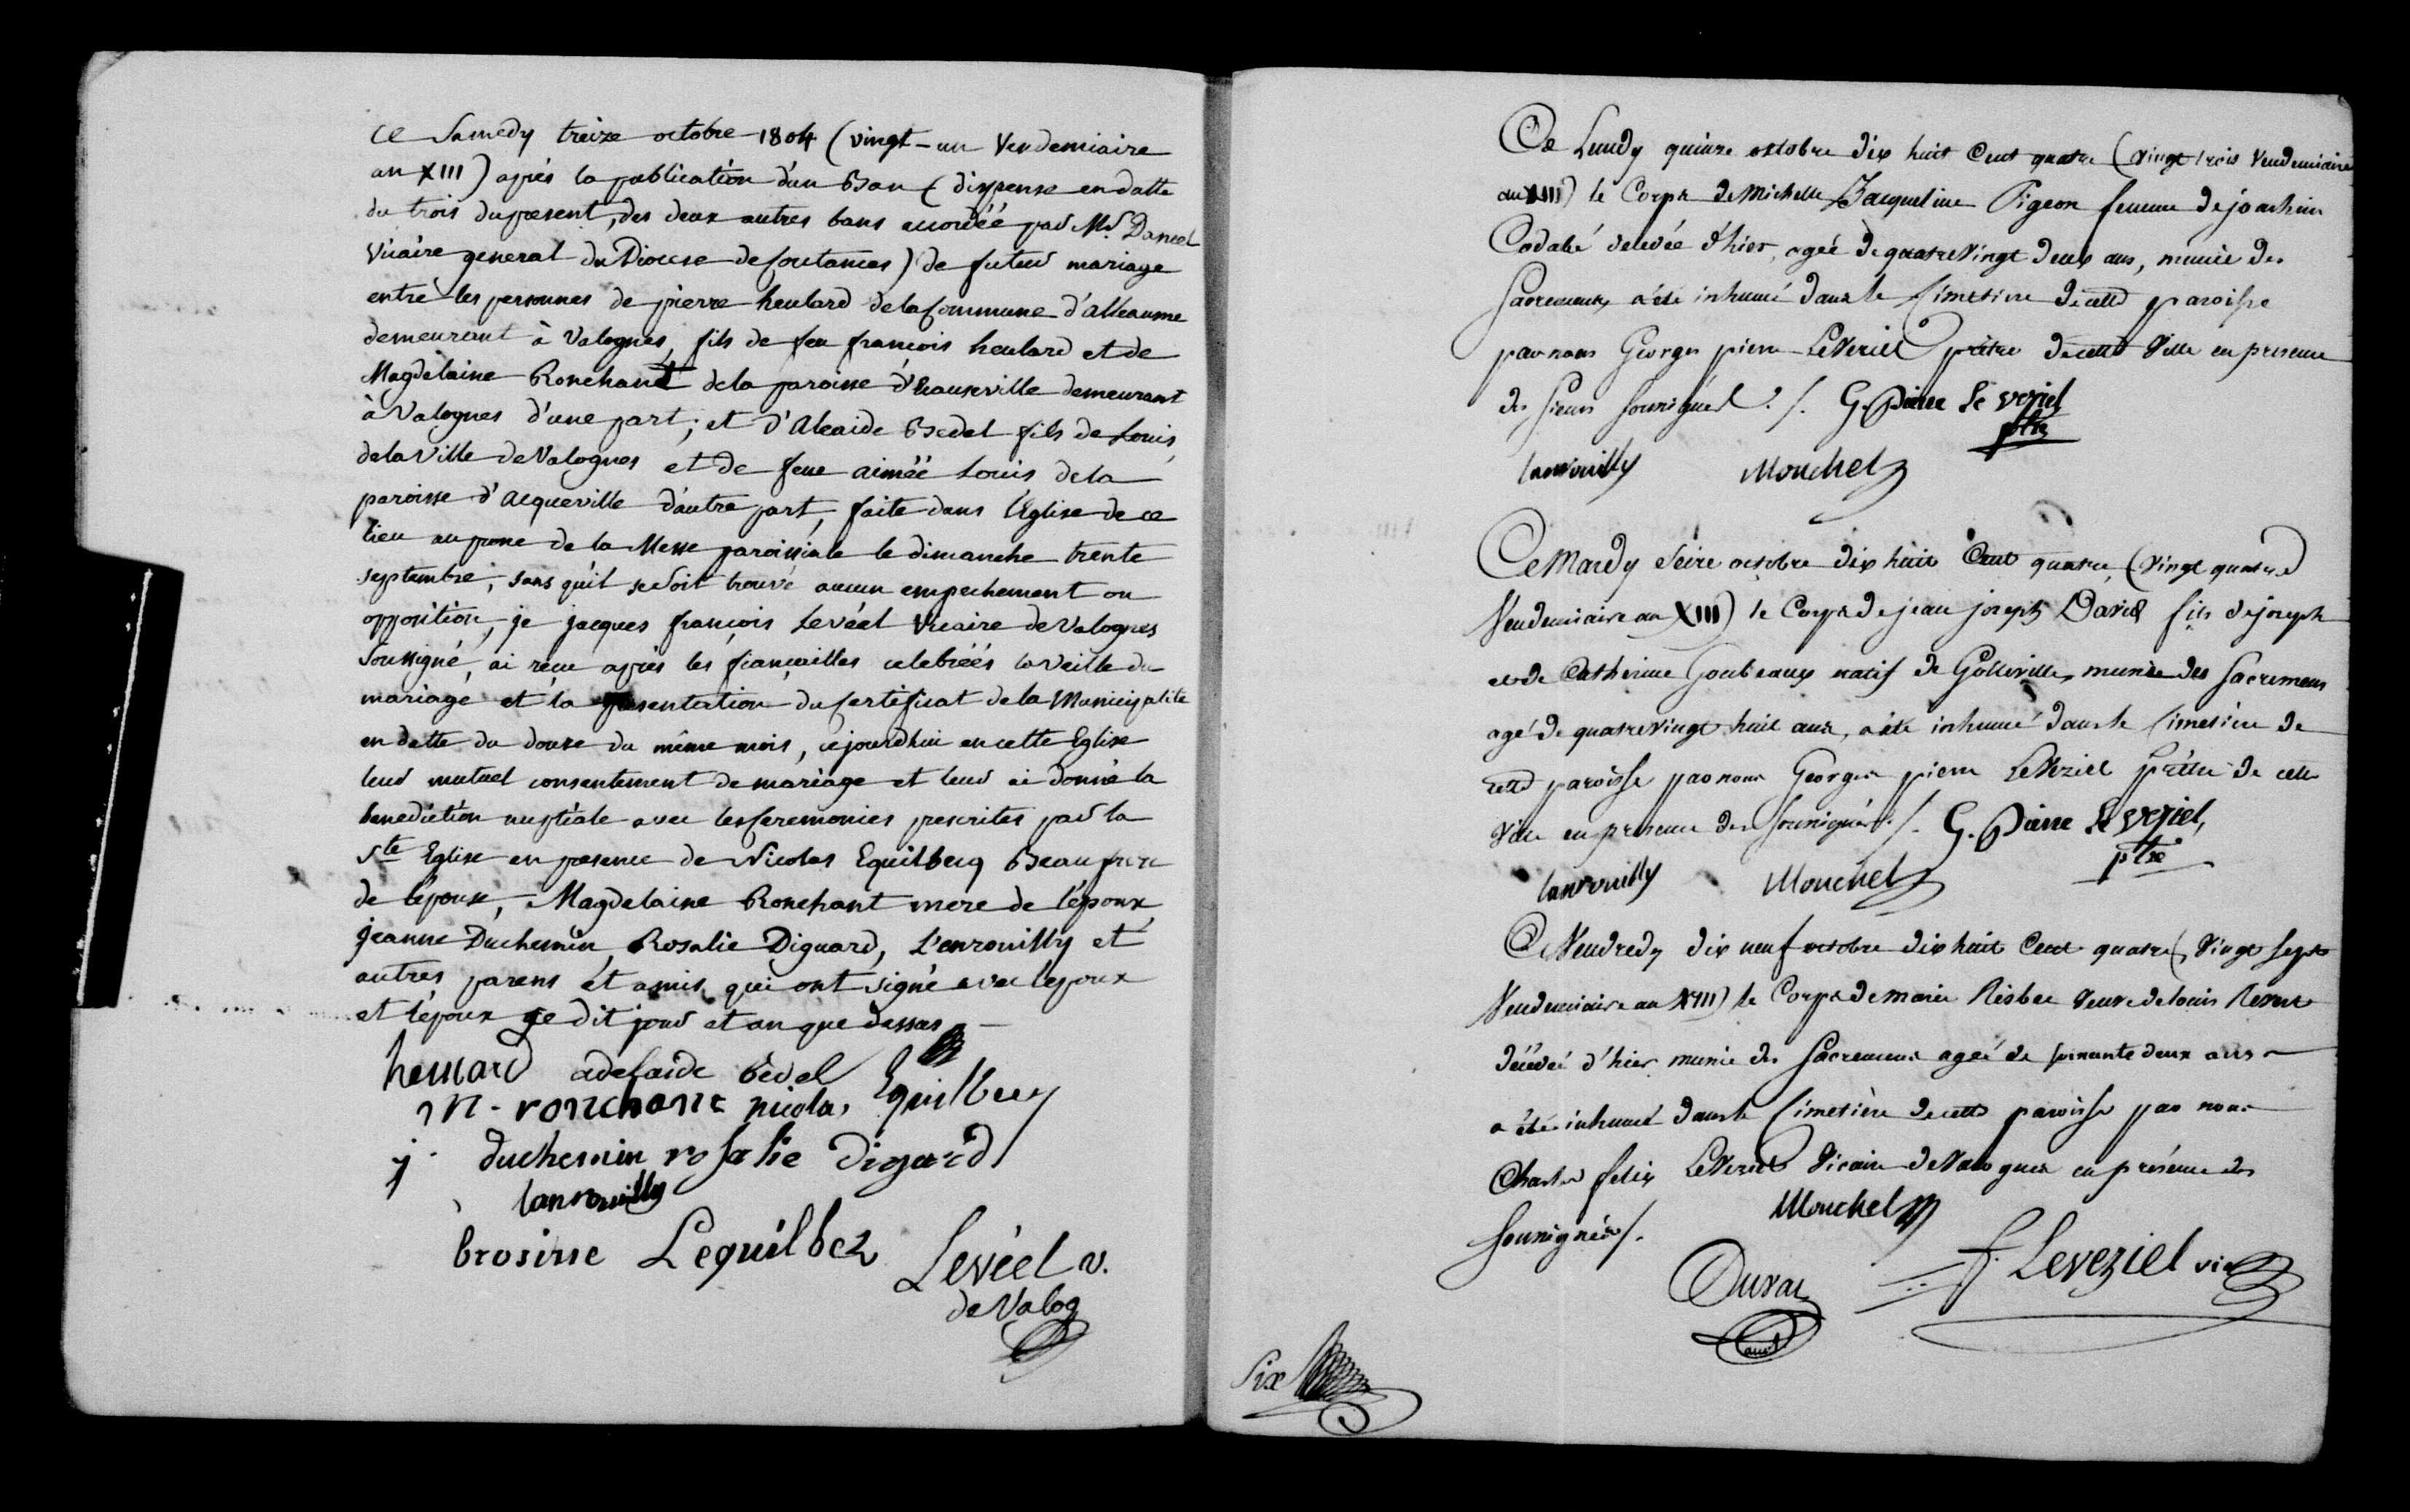 Ce Samedy treize octobre 1804 (vingt-un Vendemiaire
an XIII) après la publication d'un Ban (dispense en datte
du trois du present, des deux autres bans accordéé par Mr. Dancel
Vicaire general du Diocese de Coutances) de futur mariage
entre les personnes de pierre heulard de la Commune d'alleaume
demeurant à Valognes, fils de feu françois heulard et de
Magdelaine Ronchant de la paroisse d'huauseville demeurant
à Valognes d'une part; et d'Aleaide Bedel fils de Louis,
de la Ville de Valognes et de feue aimée Louis de la
paroisse d'acqueville d'autre part, faite dans l'Eglise de ce
lieu au prone de la Messe paroissiale le dimanche trente
septembre, sans qu'il se soit trouvé aucun empechement ou
opposition, je jacques françois Levéel Vicaire de Valognes
Soussigné, ai reçu après les fiançailles celebréés la veille du
mariage et la presentation du certificat de la Municipalité
en datte du douze du même mois, cejourdhui en cette Eglise
leur mutuel consentement de mariage et leur ai donné la
benediction nuptiale avec les ceremonies prescrites par la
Ste Eglise en presence de Nicolas Equilbecq Beaufrere
de l'epouse, Magdelaine Ronchant mere de l'époux,
jeanne Duchemin, Rosalie Diguard, L'enrouilly et
autres parens et amis qui ont signé avec lepoux
et l'épouse ce dit jour et an que dessus
heulard adelaide bedel
m. ronchant nicolas Equilbecq
j. duchemin rosalie Digard
lanrouilly
brosine Lequilbez
Levéel v.
de Valog
Ce Lundy quinze octobre dix huit Cent quatre (vingt trois Vendemiaire
an XIII) le Corps de Michelle Jacqueline Pigeon femme de joachim
Codabé décédée d'hier, agée de quatre vingt deux ans, munie des
Sacremens, a été inhumé dans le Cimetiere de cette paroisse
par nous Georges pierre LeVeriel prêtre de cette Ville en presence
des sieurs soussignés ./. G. Pierre Le Veziel
ptre
lanrouilly Mouchel
Ce Mardy Seize octobre dix huit Cent quatre, (vingt quatre
Vendemiaire an XIII) le Corps de jean joseph David fils de joseph
et de Catherine Goubeaux natif de Golleville, munie des Sacremens
agé de quatre vingt huit ans, a été inhumé dans le Cimetiere de
cette paroisse par nous Georges pierre LeVeziel prêtre de cette
Ville en presence des soussignés ./. G. Pierre Le Veziel,
ptre
lanrouilly Mouchel
Ce Vendredy dix neuf octobre dix huit Cent quatre (Vingt sept
Vendemiaire an XIII) le Corps de marie veuve de louis
décédé d'hier munie des Sacremens ageé de soixante deux ans
a été inhumé dans le Cimetière de cette paroisse par nous
Charles felix LeVeziel Vicaire de Valognes en présence des
soussignés ./. Mouchel
Duval F. Leveziel vic
Six